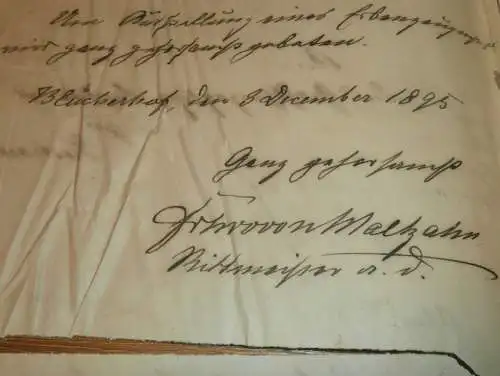 Um Ausstellung eines Erbenzeugnisses
wird ganz gehorsamst gebeten.
Blücherhof, den 3 December 1895
Ganz gehorsamst
von Maltzahn
Rittmeister a. d.